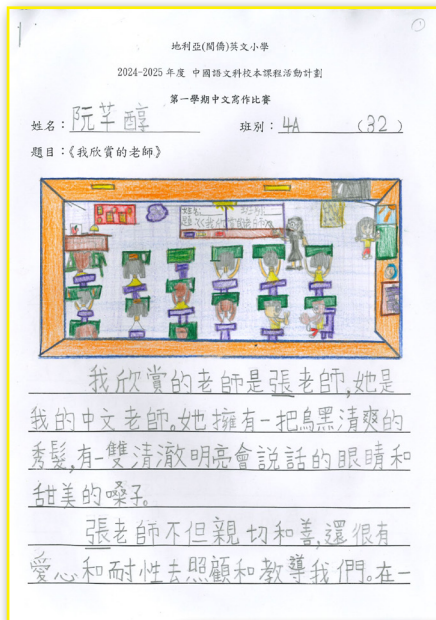 地利亞(閩僑)英文小學
2024-2025年度 中國語文科校本課程活動計劃
第一學期中文寫作比賽
姓名：阮芊醇 班別：4A (32)
題目：《我欣賞的老師》
我欣賞的老師是張老師，她是
我的中文老師。她擁有一把烏黑清爽的
秀髮，有一雙清澈明亮會說話的眼睛和
甜美的嗓子。
張老師不但親切和善，還很有
愛心和耐性去照顧和教導我們。在一